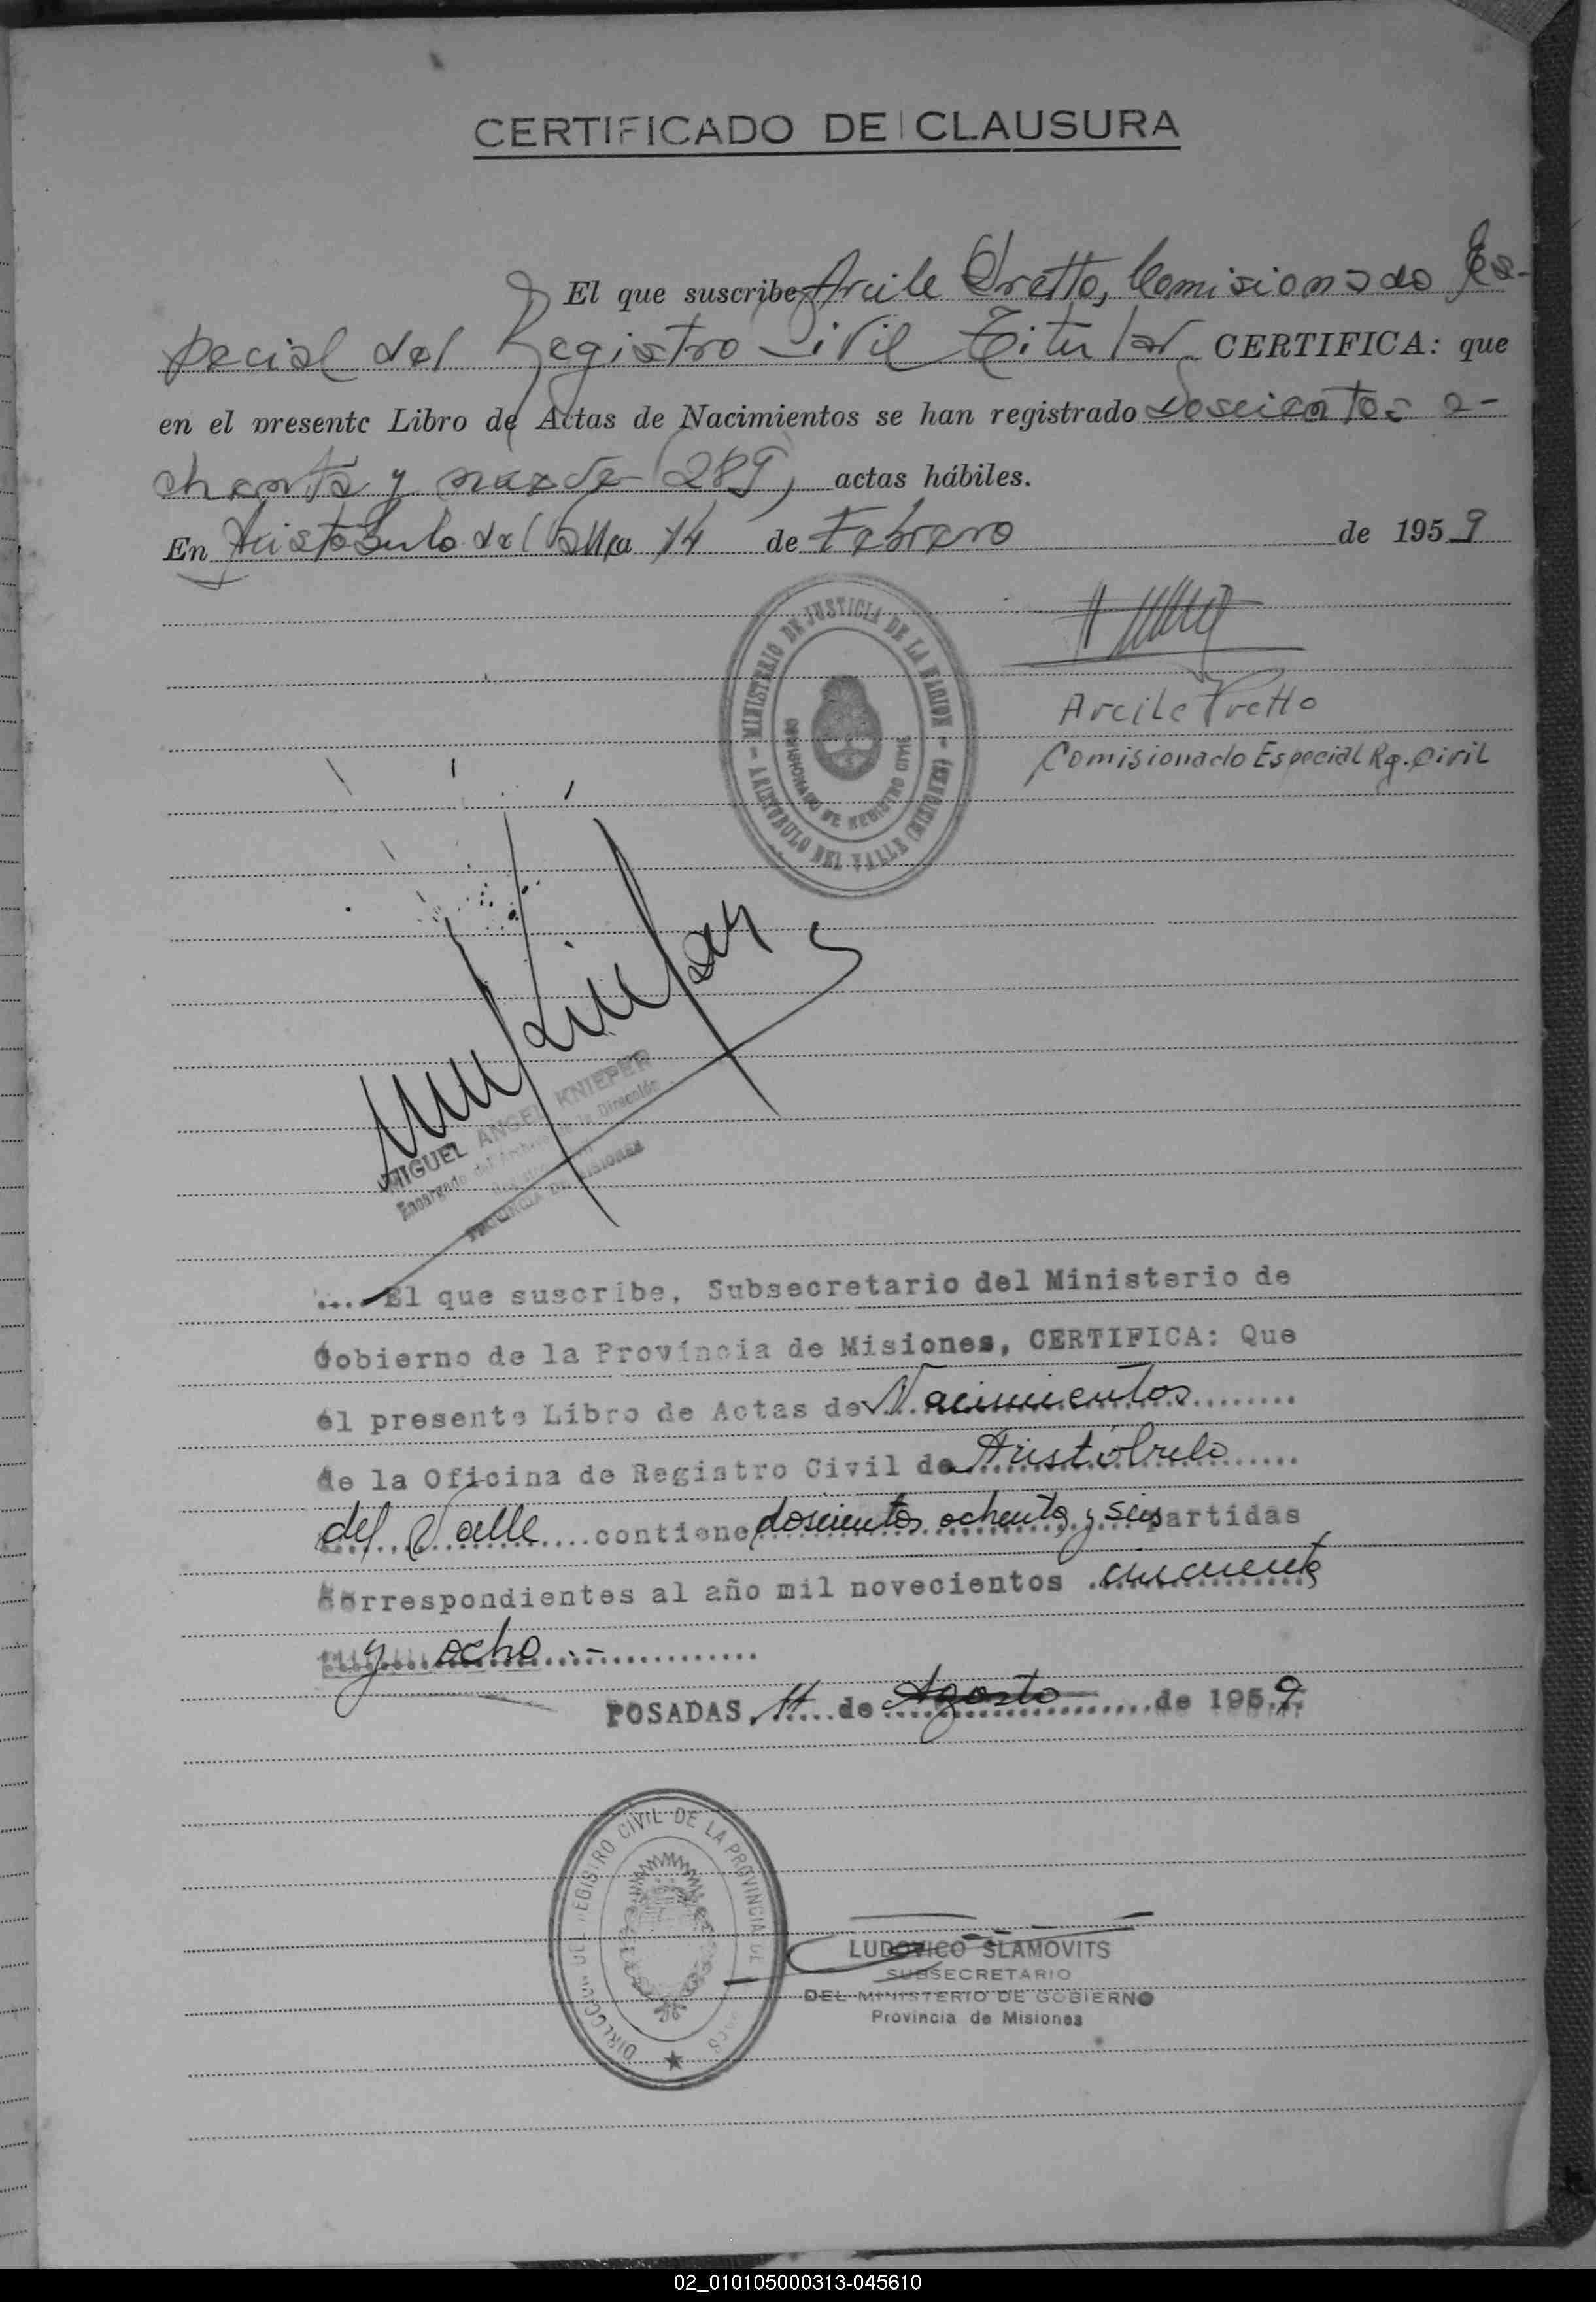 CERTIFICADO DE CLAUSURA
El que suscribe, Arcile Pretto, Comisionado Es-
pecial del Registro Civil Titular CERTIFICA: que
en el presente Libro de Actas de Nacimientos se han registrado doscientos o-
chenta y nueve (289) actas hábiles.
En Aristobulo del Valle 14 de Febrero de 1959
MINISTERIO DE JUSTICIA DE LA NACION
ARISTOBULO DEL VALLE (MISIONES)
COMISIONADO DE REGISTRO CIVIL
Arcile Pretto
Comisionado Especial Rg. Civil
MIGUEL ANGEL KNIEPER
Encargado del Archivo de la Dirección
PROVINCIA DE MISIONES
....El que suscribe, Subsecretario del Ministerio de
Gobierno de la Provincia de Misiones, CERTIFICA: Que
el presente Libro de Actas de Nacimientos........
de la Oficina de Registro Civil de Aristóbulo......
del Valle....contiene doscientos ochenta y seis partidas
correspondientes al año mil novecientos cincuenta
y ocho.-..............
POSADAS, 11 de Agosto de 1959.
DIRECCION DEL REGISTRO CIVIL DE LA PROVINCIA DE
LUDOVICO SLAMOVITS
SUBSECRETARIO
DEL MINISTERIO DE GOBIERNO
Provincia de Misiones
02_010105000313-045610